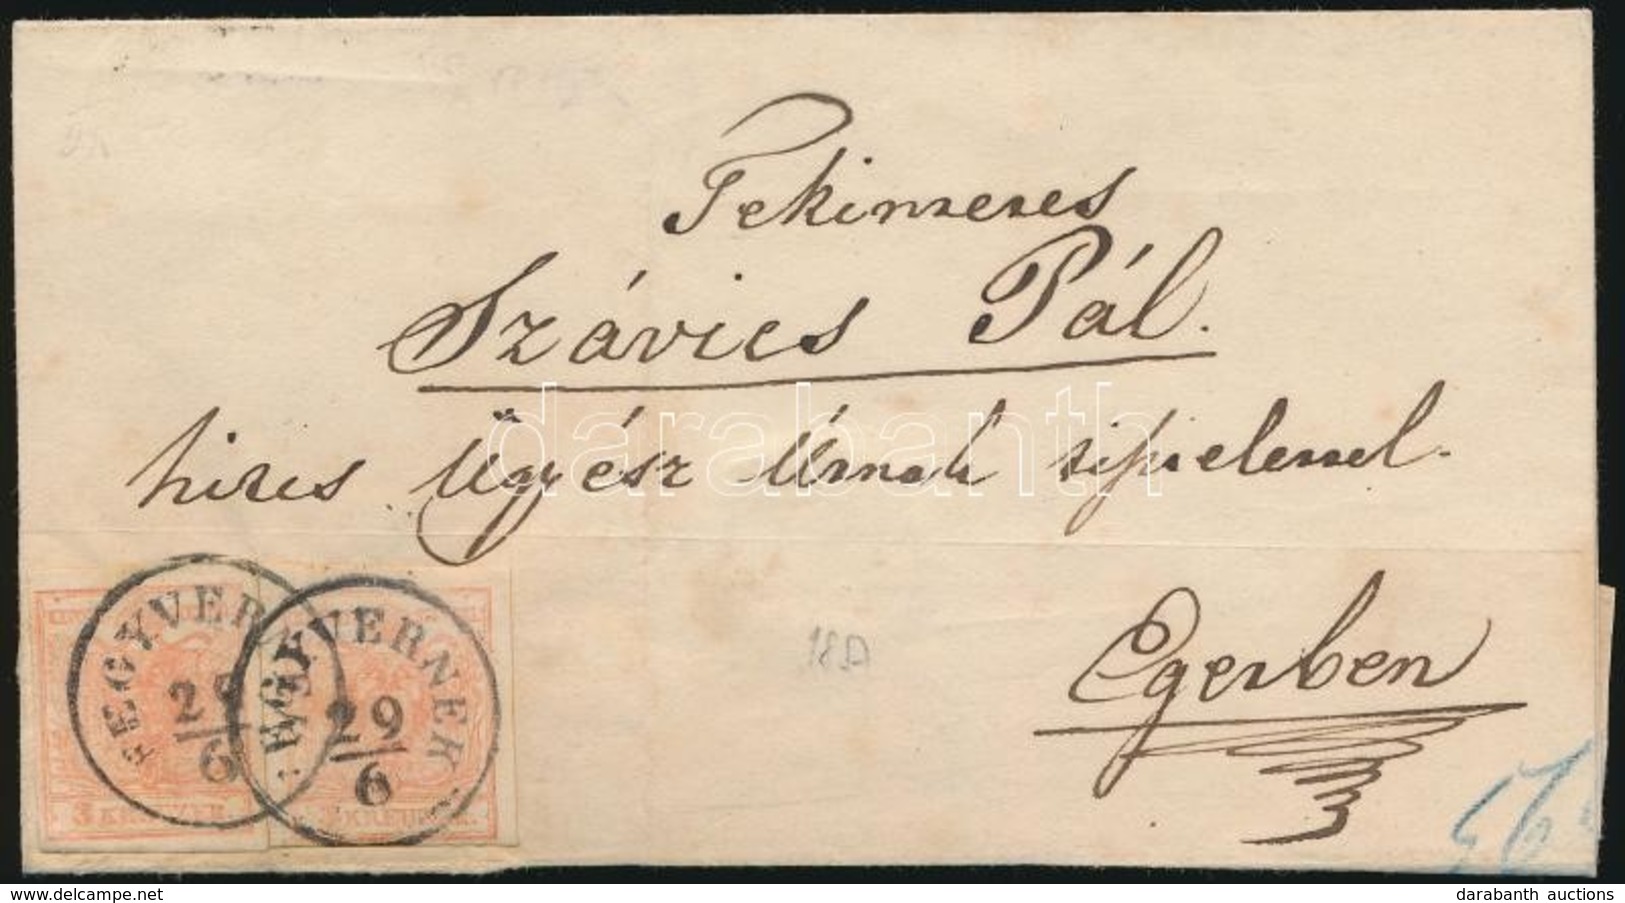 Tekintetes
Szávics Pál.
hites Ügyész Úrnak tisztelettel.
Egerben
EGYVERNEK
29
6
EGYVERNEK
29
6
3 KREUZER.
3 KREUZER.
darabanth
www.delcampe.net
darabanth auctions